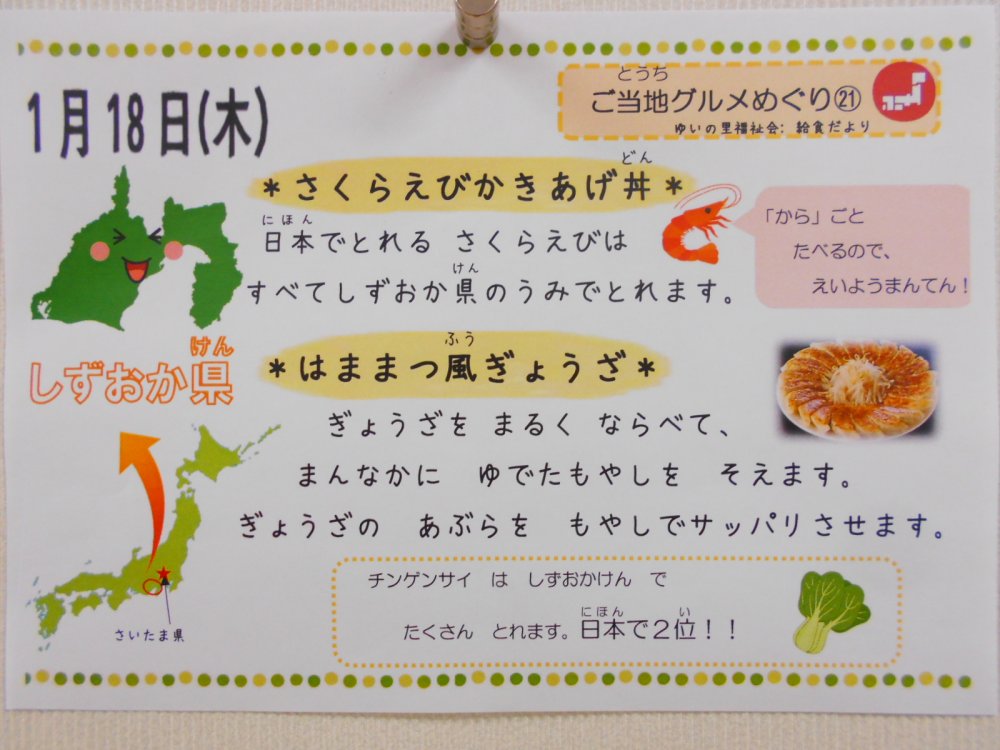 1月18日(木)
とうち
ご当地グルメめぐり㉑
ゆいの里福祉会: 給食だより
どん
*さくらえびかきあげ丼*
にほん
日本でとれる さくらえびは
けん
すべてしずおか県のうみでとれます。
「から」ごと
たべるので、
えいようまんてん!
けん
しずおか県
ふう
*はままつ風ぎょうざ*
ぎょうざを まるく ならべて、
まんなかに ゆでたもやしを そえます。
ぎょうざの あぶらを もやしでサッパリさせます。
さいたま県
チンゲンサイ は しずおかけん で
にほん い
たくさん とれます。日本で2位!!